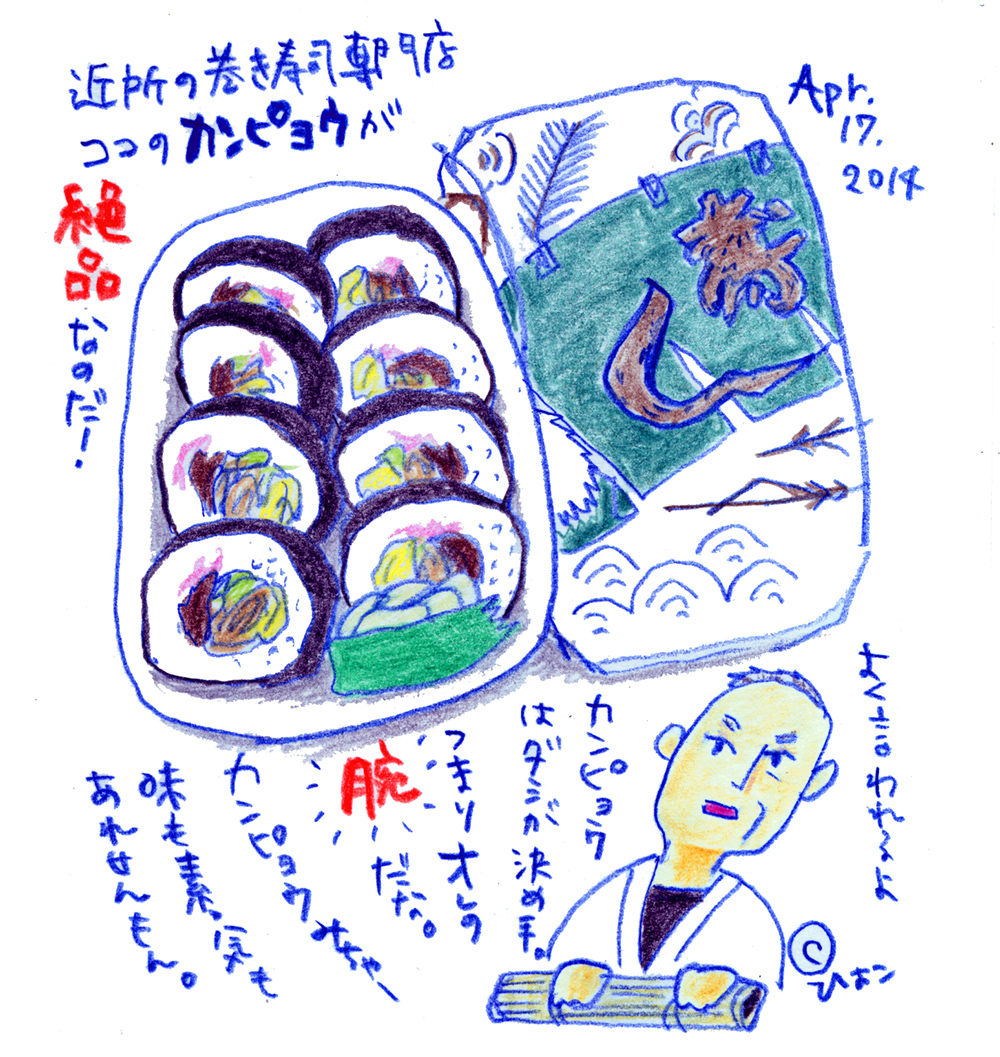 近所の巻き寿司専門店
ココのカンピョウが
絶品
なのだ!
Apr.
17.
2014
よく言われるよ
カンピョウ
はダシが決め手。
つまりオレの
腕だな。
カンピョウみちゃ、
味も素っ気も
あれせんもん。